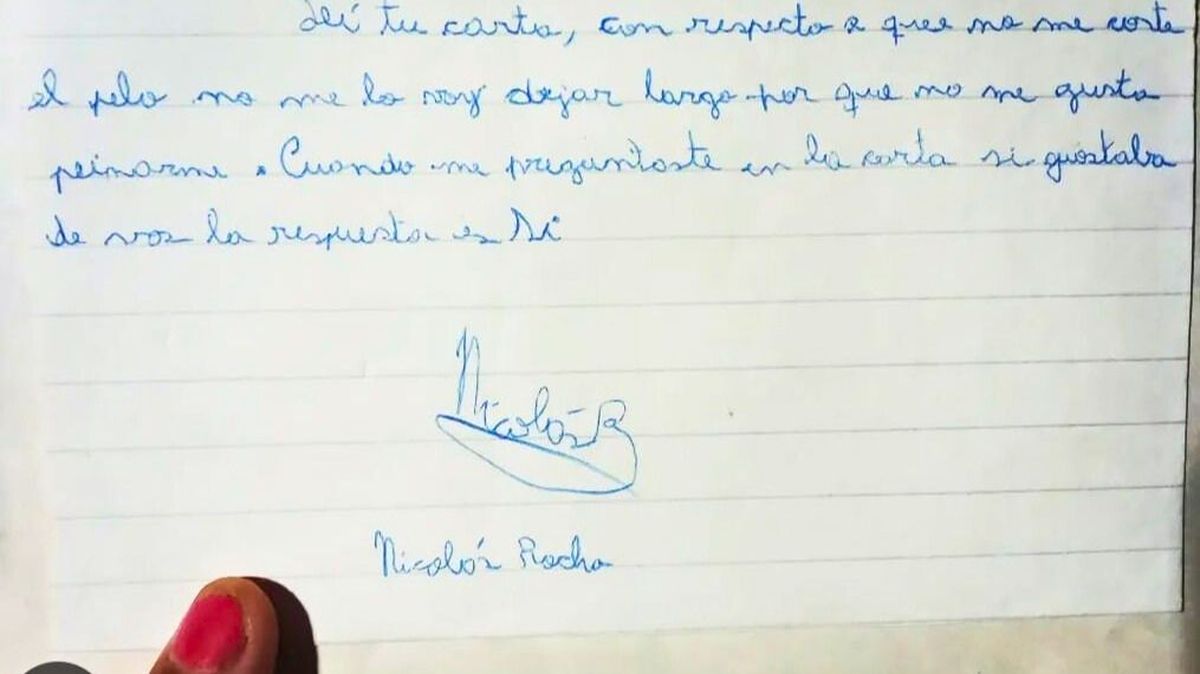 Leí tu carta, con respecto a que no me corte
el pelo no me lo voy dejar largo por que no me gusta
peinarme. Cuando me preguntaste en la carta si gustaba
de vos la respuesta es Si
Nicolás R
Nicolás Rocha